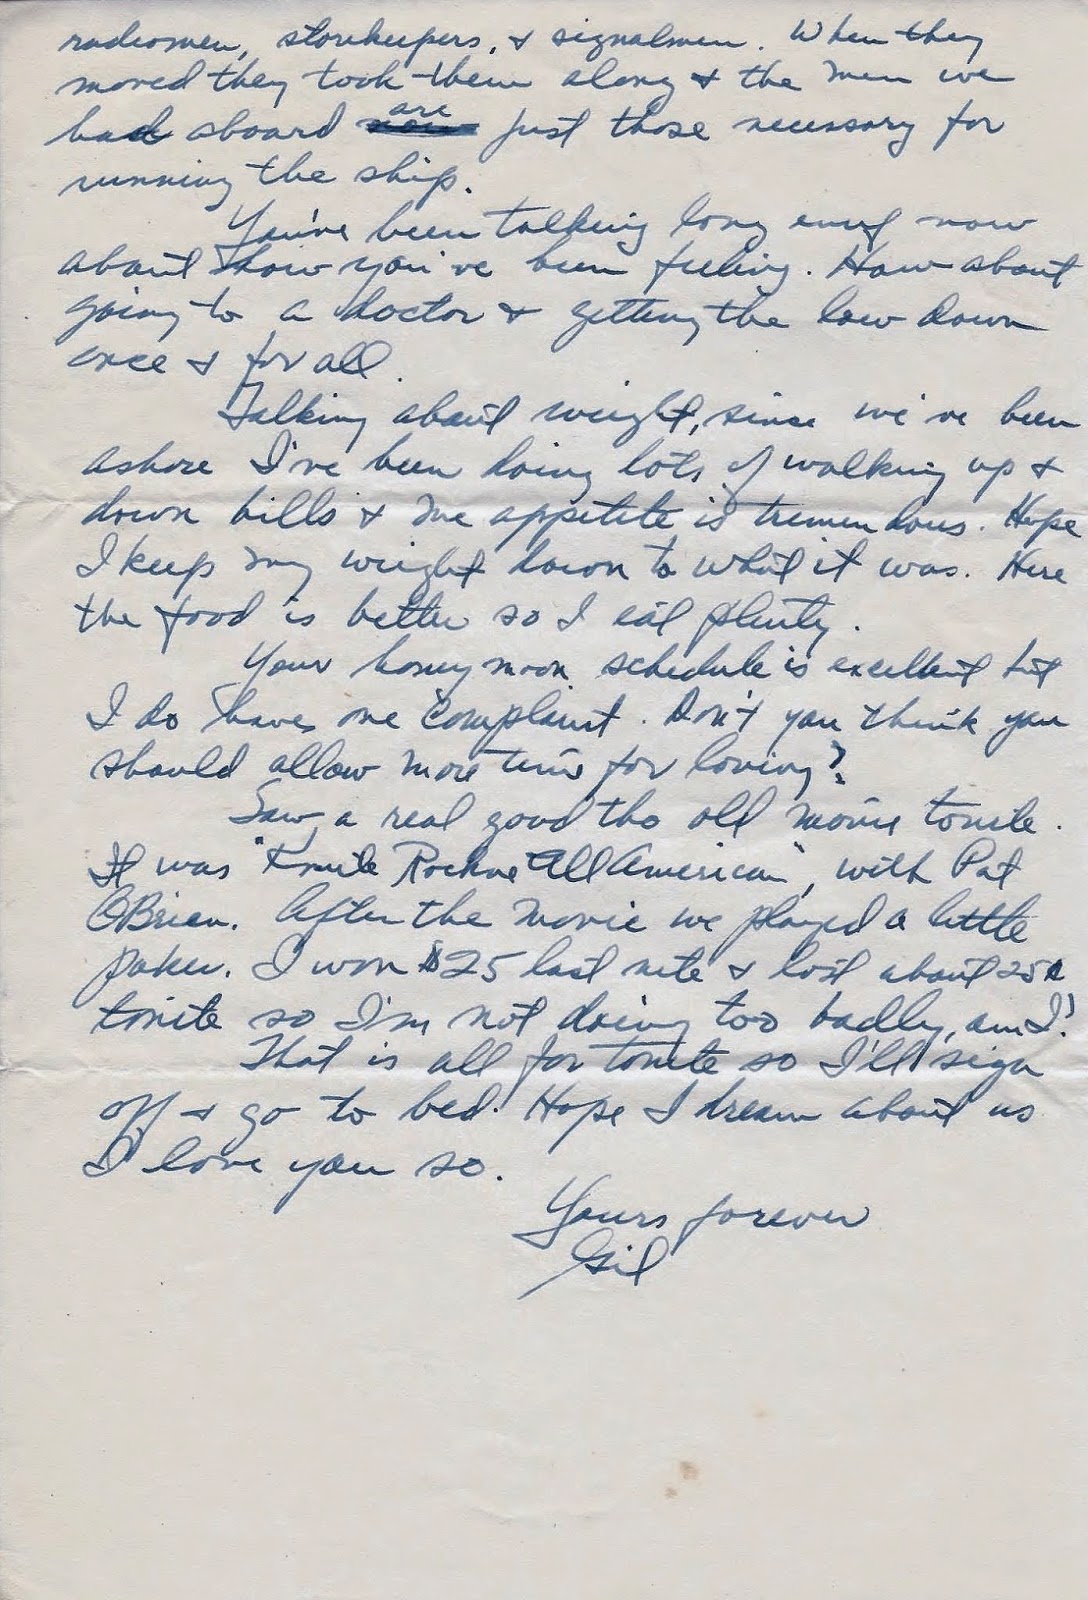 radiomen, storekeepers, & signalmen. When they
moved they took them along & the men we
had aboard are just those necessary for
running the ship.
You've been talking long enuf now
about how you've been feeling. How about
going to a doctor & getting the low down
once & for all.
Talking about weight, since we've been
ashore I've been doing lots of walking up &
down hills & me appetite is tremendous. Hope
I keep my weight down to what it was. Here
the food is better so I eat plenty.
Your honeymoon schedule is excellent but
I do have one complaint. Don't you think you
should allow more time for loving?
Saw a real good tho old movie tonite.
It was "Knute Rockne All American", with Pat
O'Brien. After the movie we played a little
poker. I won $25 last nite & lost about 25¢
tonite so I'm not doing too badly, am I?
That is all for tonite so I'll sign
off & go to bed. Hope I dream about us
I love you so.
Yours forever
Gil